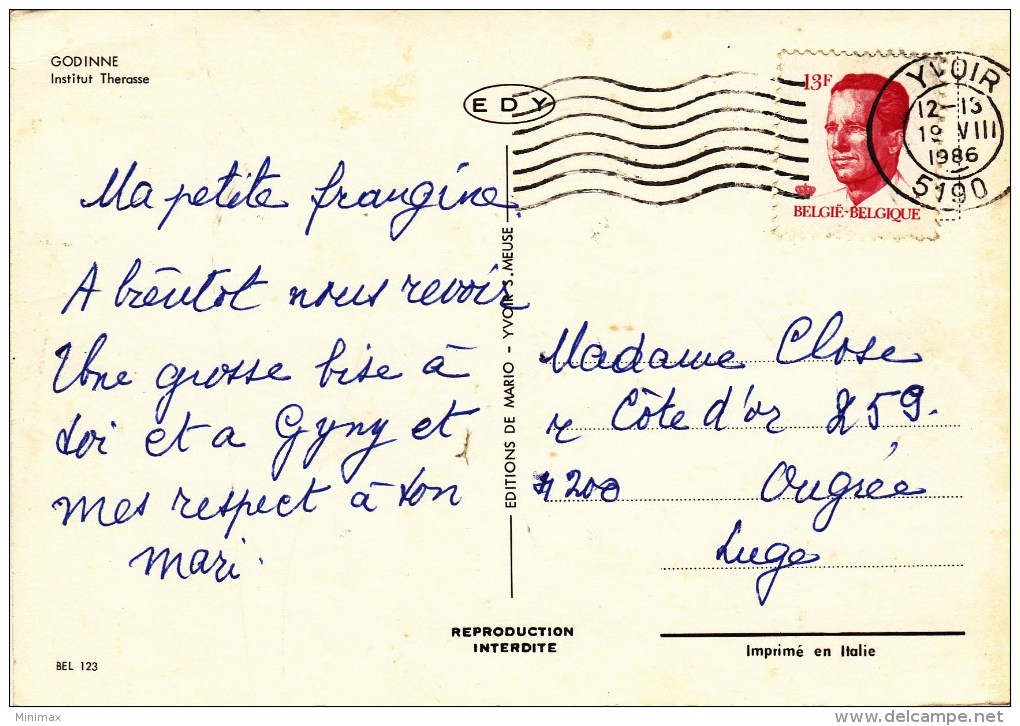 GODINNE
Institut Therasse
EDY
13F
BELGIË-BELGIQUE
YVOIR
12-13
19 VIII
1986
5190
Ma petite frangine.
A bientot nous revoir
Une grosse bise à
toi et a Gyny et
mes respect à ton
mari.
EDITIONS DE MARIO - YVOIR S. MEUSE
Madame Close
r Côte d'or 259.
4200 Ougrée
Liège
REPRODUCTION
INTERDITE
Imprimé en Italie
BEL 123
Minimax
www.delcampe.net